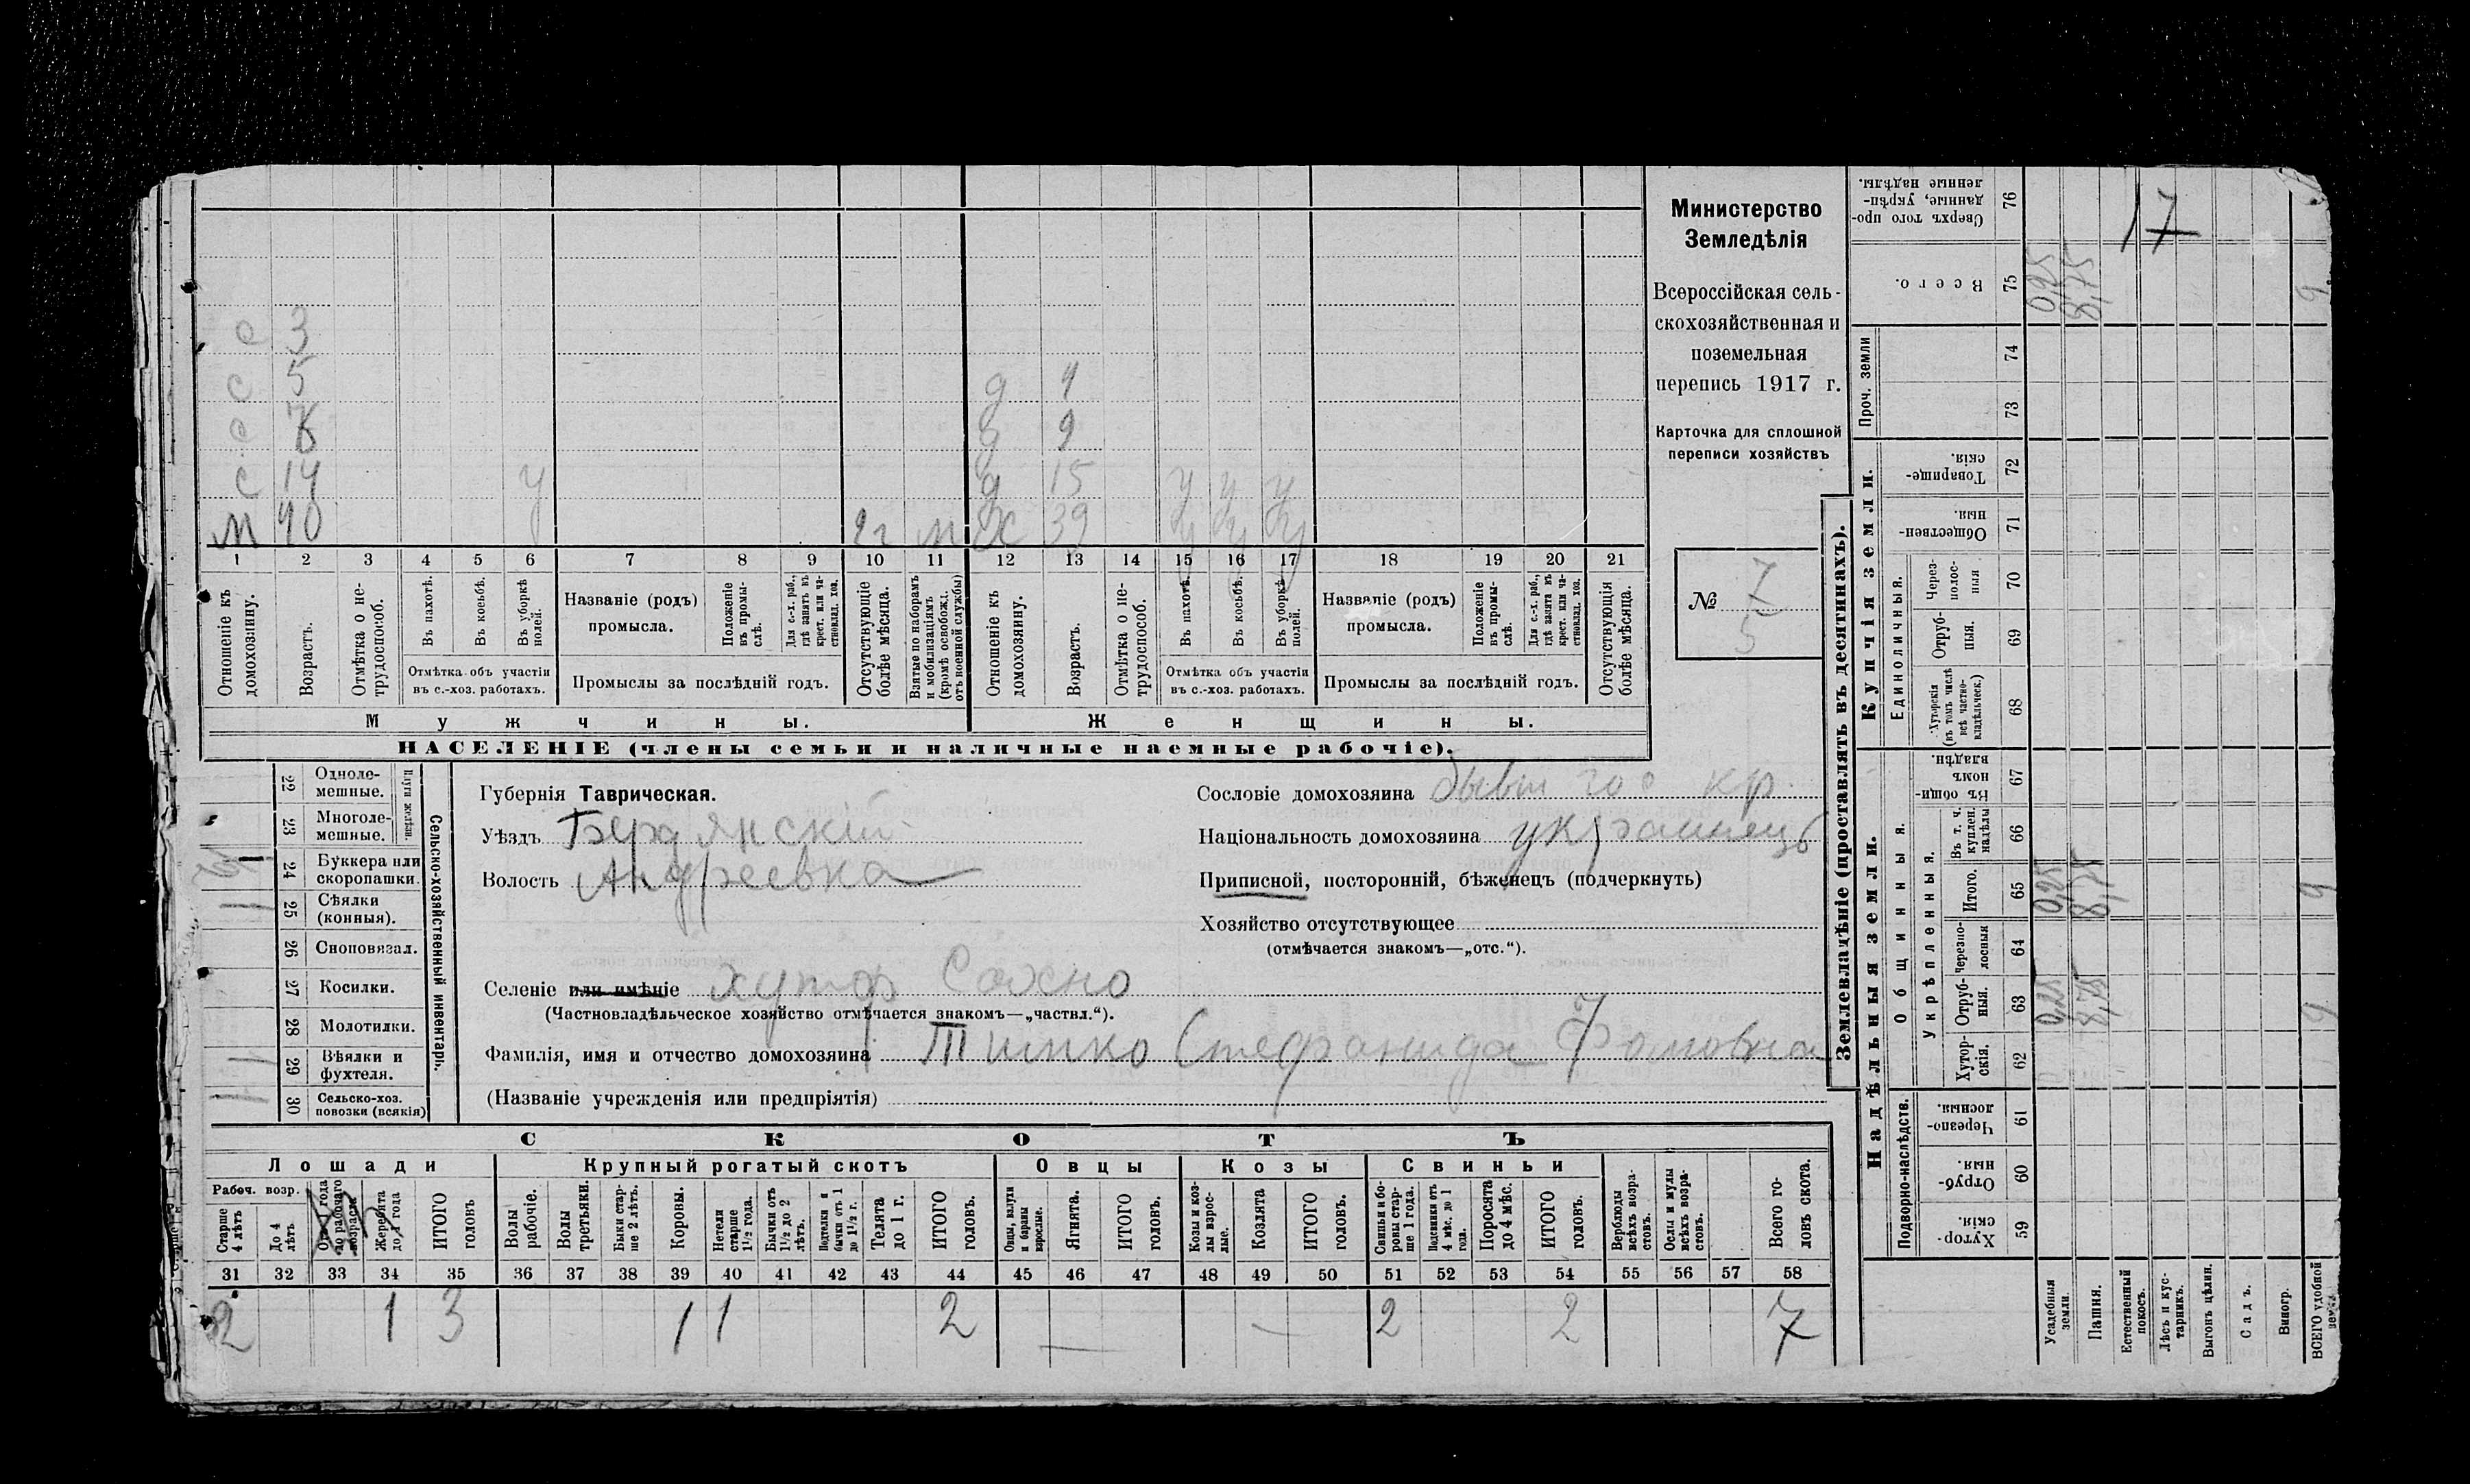 с 3
с 5 д 4
с 8 д 9
с 14 у д 15 у у у
м 40 2 г м Х 39 у у у
1 2 3 4 5 6 7 8 9 10 11 12 13 14 15 16 17 18 19 20 21
Отношеніе къ домохозяину.
Возрастъ.
Отмѣтка о нетрудоспособ.
Въ пахотѣ.
Въ косьбѣ.
Въ уборкѣ полей.
Отмѣтка объ участіи
въ с.-хоз. работахъ.
Названіе (родъ)
промысла.
Положеніе въ промыслѣ.
Для с.-х. раб., гдѣ занятъ въ крест. или частновлад. хоз.
Промыслы за послѣдній годъ.
Отсутствующіе болѣе мѣсяца.
Взятые по наборамъ и мобилизаціямъ (кромѣ освобожд. отъ военной службы)
Отношеніе къ домохозяину.
Возрастъ.
Отмѣтка о нетрудоспособ.
Въ пахотѣ.
Въ косьбѣ.
Въ уборкѣ полей.
Отмѣтка объ участіи
въ с.-хоз. работахъ.
Названіе (родъ)
промысла.
Положеніе въ промыслѣ.
Для с.-х. раб., гдѣ занята въ крест. или частновлад. хоз.
Промыслы за послѣдній годъ.
Отсутствующія болѣе мѣсяца.
Мужчины. Женщины.
НАСЕЛЕНІЕ (члены семьи и наличные наемные рабочіе).
Министерство
Земледѣлія
Всероссійская сель-
скохозяйственная и
поземельная
перепись 1917 г.
Карточка для сплошной
переписи хозяйствъ
№ 7
5
22 Однолемешные.
23 Многолемешные.
24 Буккера или скоропашки.
25 Сѣялки (конныя).
26 Сноповязал.
27 Косилки.
28 Молотилки.
29 Вѣялки и фухтеля.
30 Сельско-хоз. повозки (всякія)
Сельско-хозяйственный инвентарь.
Губернія Таврическая.
Уѣздъ Бердянский
Волость Андреевка
Селеніе или имѣніе хутор Сахно
(Частновладѣльческое хозяйство отмѣчается знакомъ—„частвл.“).
Фамилія, имя и отчество домохозяина Тимко Стефанида Фомовна
(Названіе учрежденія или предпріятія)
Сословіе домохозяина бывш гос кр.
Національность домохозяина украинецъ
Приписной, посторонній, бѣженецъ (подчеркнуть)
Хозяйство отсутствующее
(отмѣчается знакомъ—„отс.“).
СКОТЪ
Лошади Крупный рогатый скотъ Овцы Козы Свиньи
Рабоч. возр.
Старше 4 лѣтъ
До 4 лѣтъ
Отъ 1 года до рабочаго возраста
Жеребята до 1 года
ИТОГО головъ
Волы рабочіе.
Волы третьяки.
Быки старше 2 лѣтъ.
Коровы.
Нетели старше 1½ года.
Бычки отъ 1½ до 2 лѣтъ.
Подтелки и бычки отъ 1 до 1½ г.
Телята до 1 г.
ИТОГО головъ.
Овцы, валухи и бараны взрослые.
Ягнята.
ИТОГО головъ.
Козы и козлы взрослые.
Козлята
ИТОГО головъ.
Свиньи и боровы старше 1 года.
Подсвинки отъ 4 мѣс. до 1 года.
Поросята до 4 мѣс.
ИТОГО головъ.
Верблюды всѣхъ возрастовъ.
Ослы и мулы всѣхъ возрастовъ.
Всего головъ скота.
31 32 33 34 35 36 37 38 39 40 41 42 43 44 45 46 47 48 49 50 51 52 53 54 55 56 57 58
2 1 3 1 1 2 — — 2 2 7
Землевладѣніе (проставлять въ десятинахъ).
Надѣльныя земли. Купчія земли. Проч. земли
Подворно-наслѣдств.
Общинныя.
Укрѣпленныя.
Единоличныя.
Хуторскія. 59
Отрубныя. 60
Черезполосныя. 61
Хуторскія. 62
Отрубныя. 63 0,25 8,75 9
Черезполосныя 64
Итого. 65 0,25 8,75 9
Въ т. ч. куплен. надѣлы 66
Въ общинномъ владѣн. 67
Хуторскія (въ томъ числѣ всѣ частновладѣльческ.) 68
Отрубныя. 69
Черезполосныя 70
Общественныя. 71
Товарищескія. 72
73
74
Всего. 75 0,25 8,75 9
Сверхъ того проданные, укрѣпленные надѣлы. 76
17
Усадебныя земли.
Пашня.
Естественный покосъ.
Лѣсъ и кустарникъ.
Выгонъ цѣлин.
Садъ.
Виногр.
ВСЕГО удобной земли.